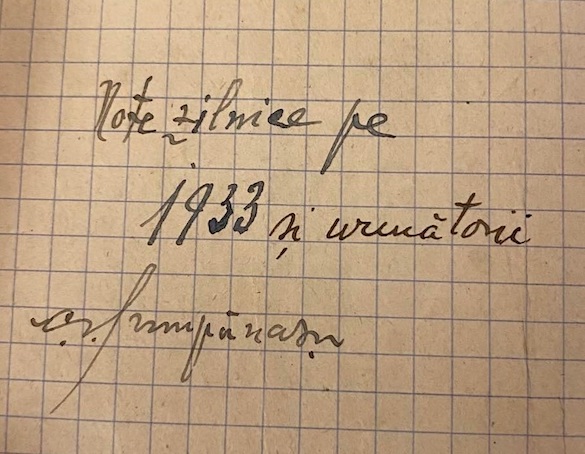 Note zilnice pe
1933 și următorii